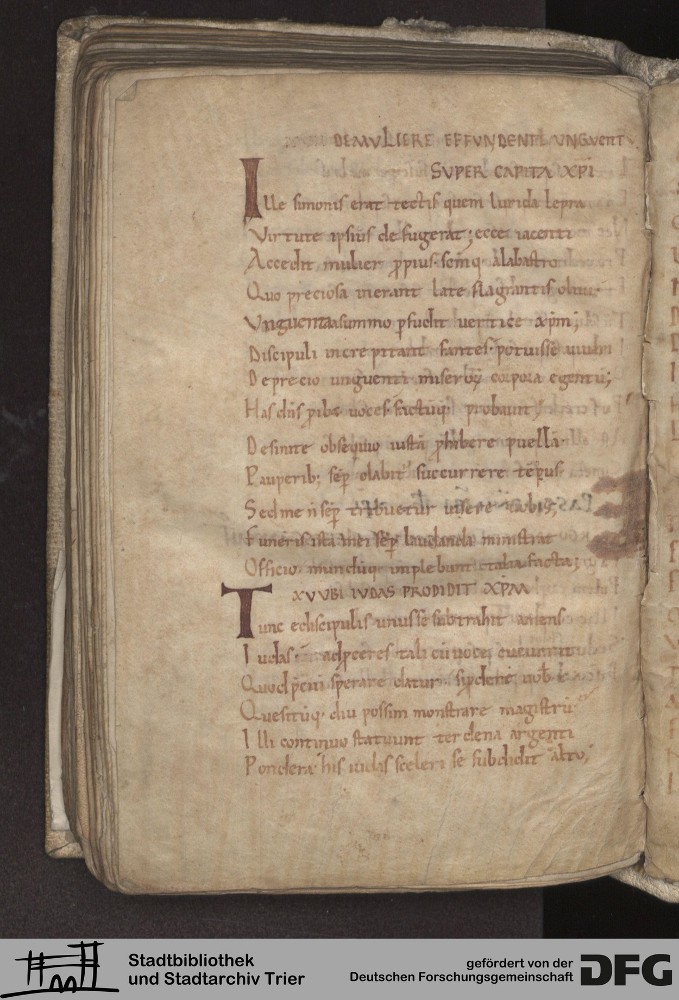 DE MULIERE EFFUNDENTE UNGUENT
SUPER CAPITA XPI
Ille simonis erat tectis quem lurida lepra
Virtute ipsius de fugerat; ecce iacenti
Accedit mulier ꝓpius. seq; alabastro
Quo preciosa inerant late flagrantis oliui.
Unguenta asummo ꝑfudit uertice xpm;
Discipuli increpitant fantes. potuisse
De precio unguenti miserꝝ corpora egentū;
Has dn̄s ꝓibet uoces. factūq; probauit
Desinite obsequio iustā ꝓhibere puellā.
Pauperib; sēp olabit succurrere tēpus.
Sed me n̄ sēp tribuetur uisere uobis;
Funeris ista mei sēp laudanda ministrat
Officio. mundūq; implebunt talia facta;
XV UBI IUDAS PRODIDIT XPM
Tunc e discipulis unus se subtrahit amens.
Iudas. & ad ꝓceres tali cū uoce cucurrit
Quod p̄cii sperare datur. si ꝓdere nob̄
Quesitūq; diu possim monstrare magistrū
Illi continuo statuunt ter dena argenti
Pondera. his iudas sceleri se subdidit alto;
Stadtbibliothek
und Stadtarchiv Trier
gefördert von der
Deutschen Forschungsgemeinschaft
DFG